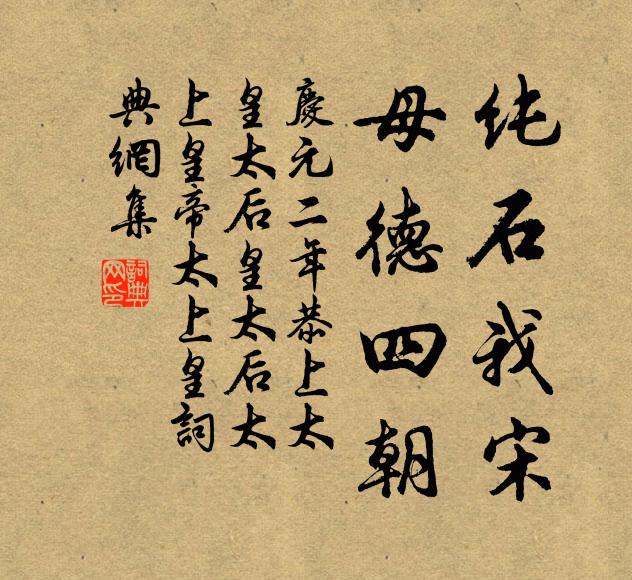 纯石我宋
母德四朝
慶元二年恭上太
皇太后皇太后太
上皇帝太上皇詞
典網集
詞典网印